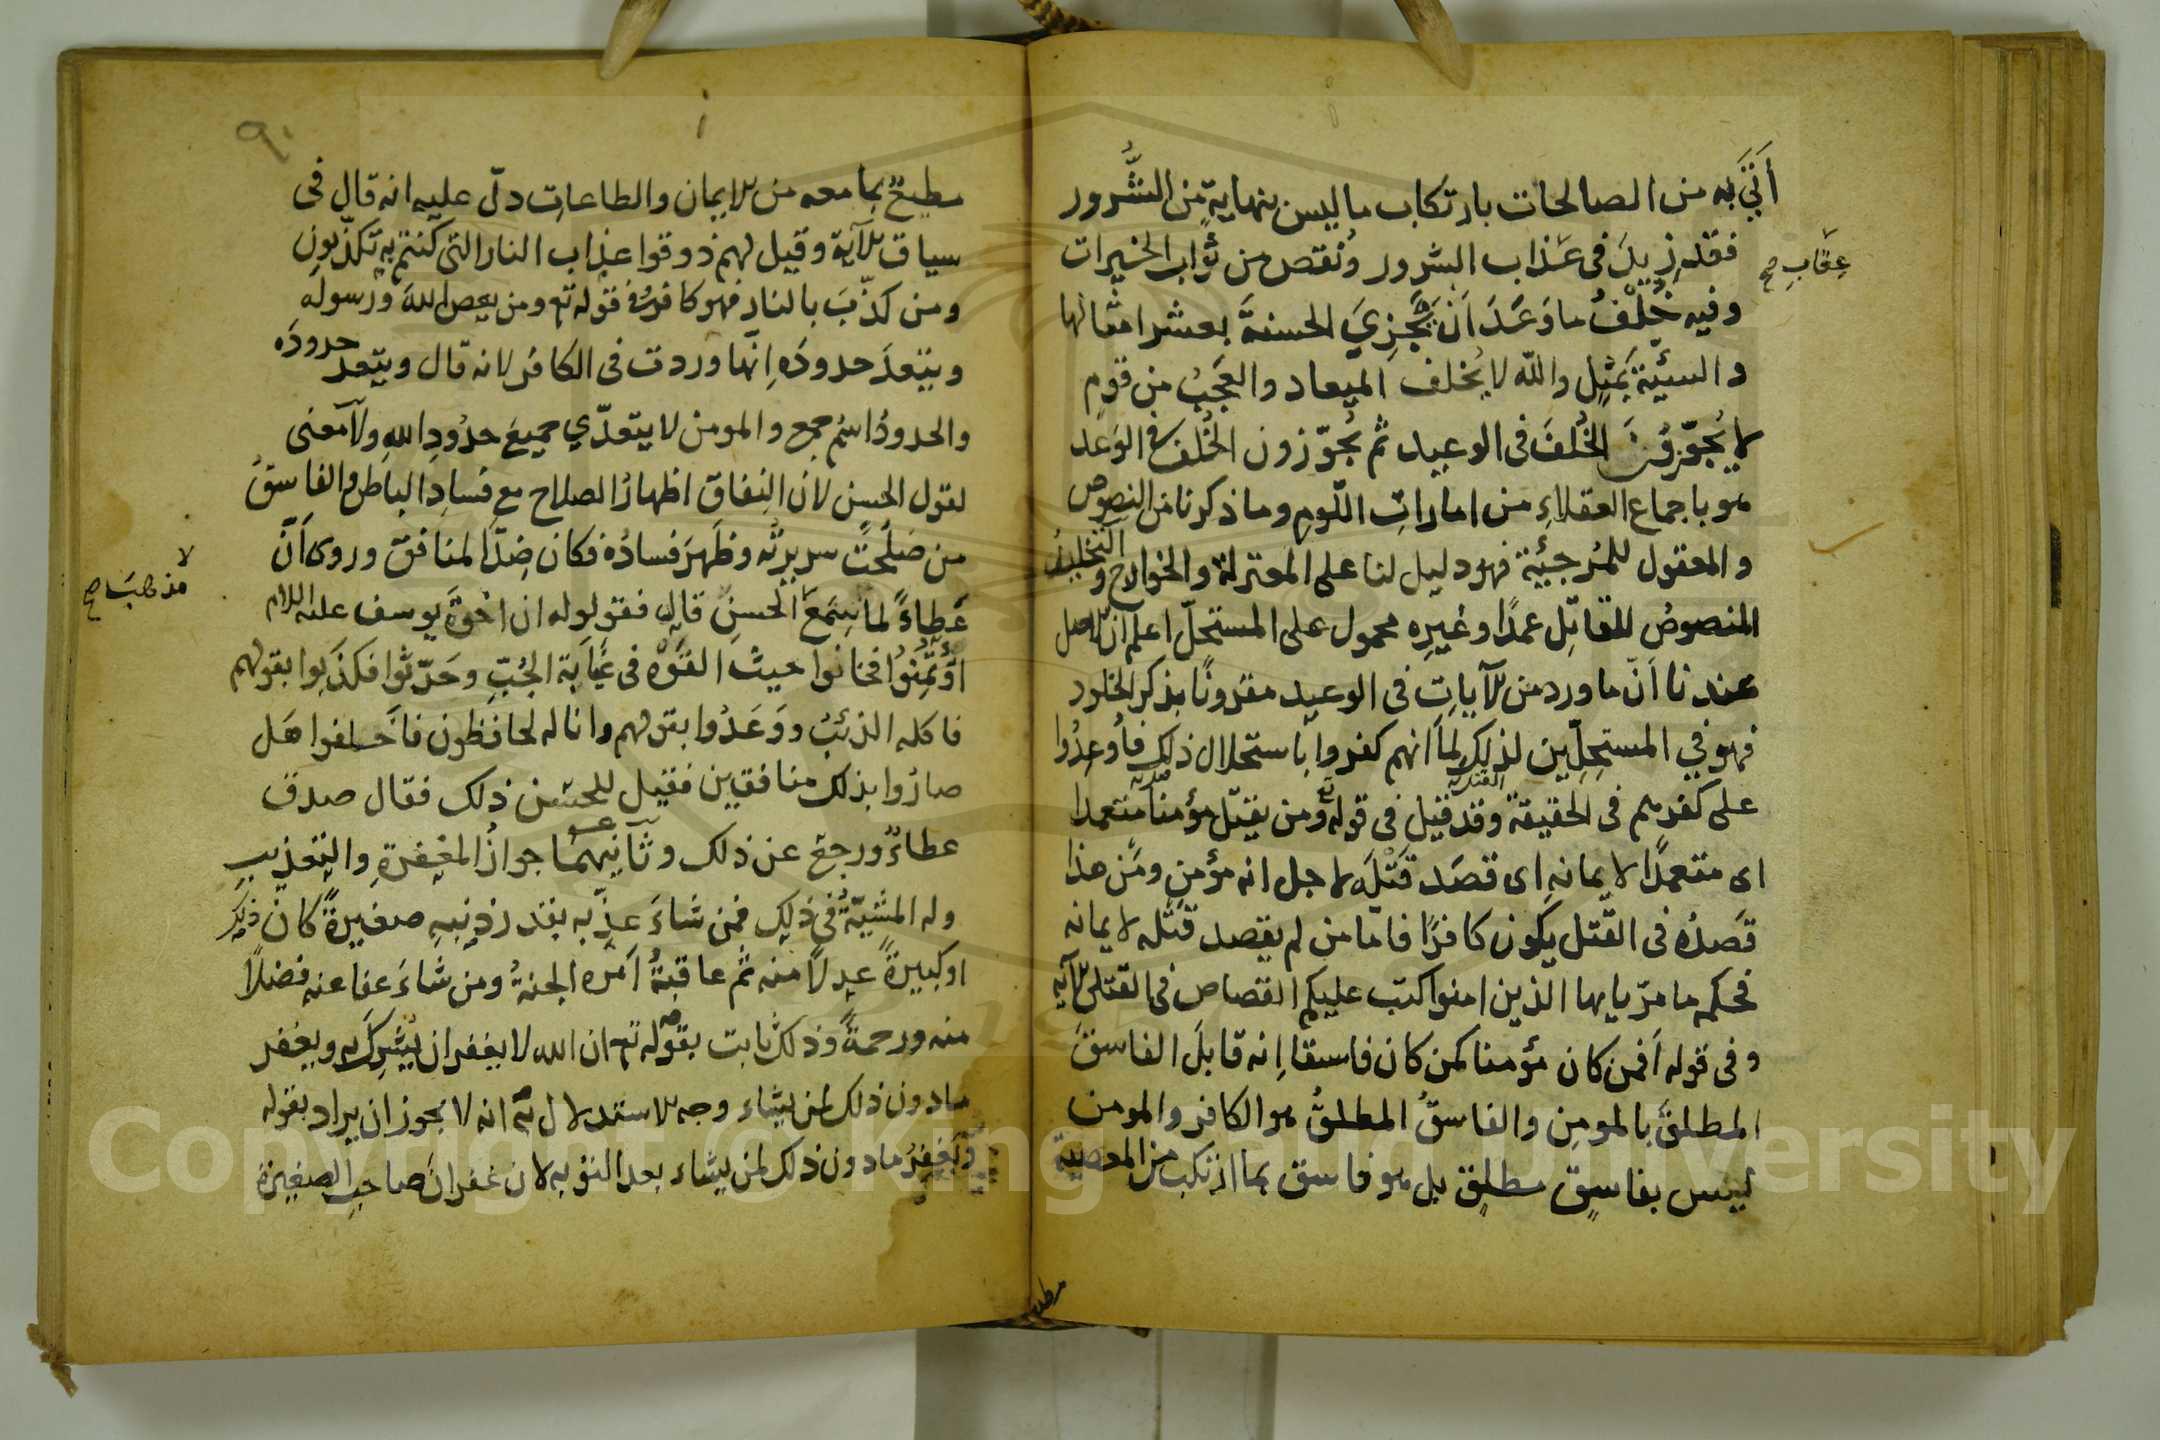 أتي به من الصالحات بارتكاب ما ليس بنهاية من الشرور
فقد زيل في عذاب الشرور ونقص من ثواب الخيرات
عقاب صح
وفيه خلف ما وعد أن يجزي الحسنة بعشر امثالها
والسيئة بمثل والله لا يخلف الميعاد والعجب من قوم
لا يجوزون الخلف في الوعيد ثم يجوزون الخلف في الوعد
هو باجماع العقلاء من امارات اللوم وما ذكرنا من النصوص
والمعقول للمرجئة فهو دليل لنا على المعتزلة والخوارج والتخليد
المنصوص للقاتل عمدا وغيره محمول على المستحل اعلم ان الاصل
عندنا أن ما ورد من الآيات في الوعيد مقرونا بذكر الخلود
فهو في المستحلين لذلك لما انهم كفروا باستحلال ذلك فأوعدوا
على كفرهم في الحقيقة وقد قيل في قوله ومن يقتل مؤمنا متعمدا
اى متعمدا لايمانه اى قصد قتله لاجل انه مؤمن ومن هذا
قصده في القتل يكون كافرا فاما من لم يقصد قتله لايمانه
فحكمه ما مر يايها الذين امنوا كتب عليكم القصاص في القتلى الآية
وفي قوله أفمن كان مؤمنا كمن كان فاسقا إنه قابل الفاسق
المطلق بالمومن والفاسق المطلق هو الكافر والمومن
ليس بفاسق مطلق بل هو فاسق بما ارتكب من المعصية
٩٠
مطيع بما معه من الايمان والطاعات دل عليه انه قال في
سياق الآية وقيل لهم ذوقوا عذاب النار التي كنتم به تكذبون
ومن كذب بالنار فهو كافر وقوله تع ومن يعص الله ورسوله
ويتعد حدوده إنها وردت في الكافر لانه قال ويتعد حدوده
والحدود اسم جمع والمومن لا يتعدي جميع حدود الله ولا معنى
لقول الحسن لان النفاق اظهار الصلاح مع فساد الباطن والفاسق
من صلحت سريرته وظهر فساده فكان ضد المنافق وروى أن
مذهب صح
عطاء لما سمع الحسن قال فقولوا له ان اخوة يوسف عليه السلام
اؤتمنوا فخانوا حيث القوه في غيابة الجب وحدثوا فكذبوا بقولهم
فاكله الذئب ووعدوا بقولهم وانا له لحافظون فأخلفوا هل
صاروا بذلك منافقين فقيل للحسن ذلك فقال صدق
عطاء ورجع عن ذلك وثانيهما جواز المغفرة والتعذيب
وله المشية في ذلك فمن شاء عذبه بقدر ذنبه صغيرة كان ذلك
او كبيرة عدلا منه ثم عاقبة أمره الجنة ومن شاء عفا عنه فضلا
منه ورحمة وذلك ثابت بقوله تع ان الله لا يغفر ان يشرك به ويغفر
ما دون ذلك لمن يشاء وجه الاستدلال به انه لا يجوز ان يراد بقوله
ويغفر ما دون ذلك لمن يشاء بعد التوبه لان غفران صاحب الصغيرة
Copyright © King Saud University